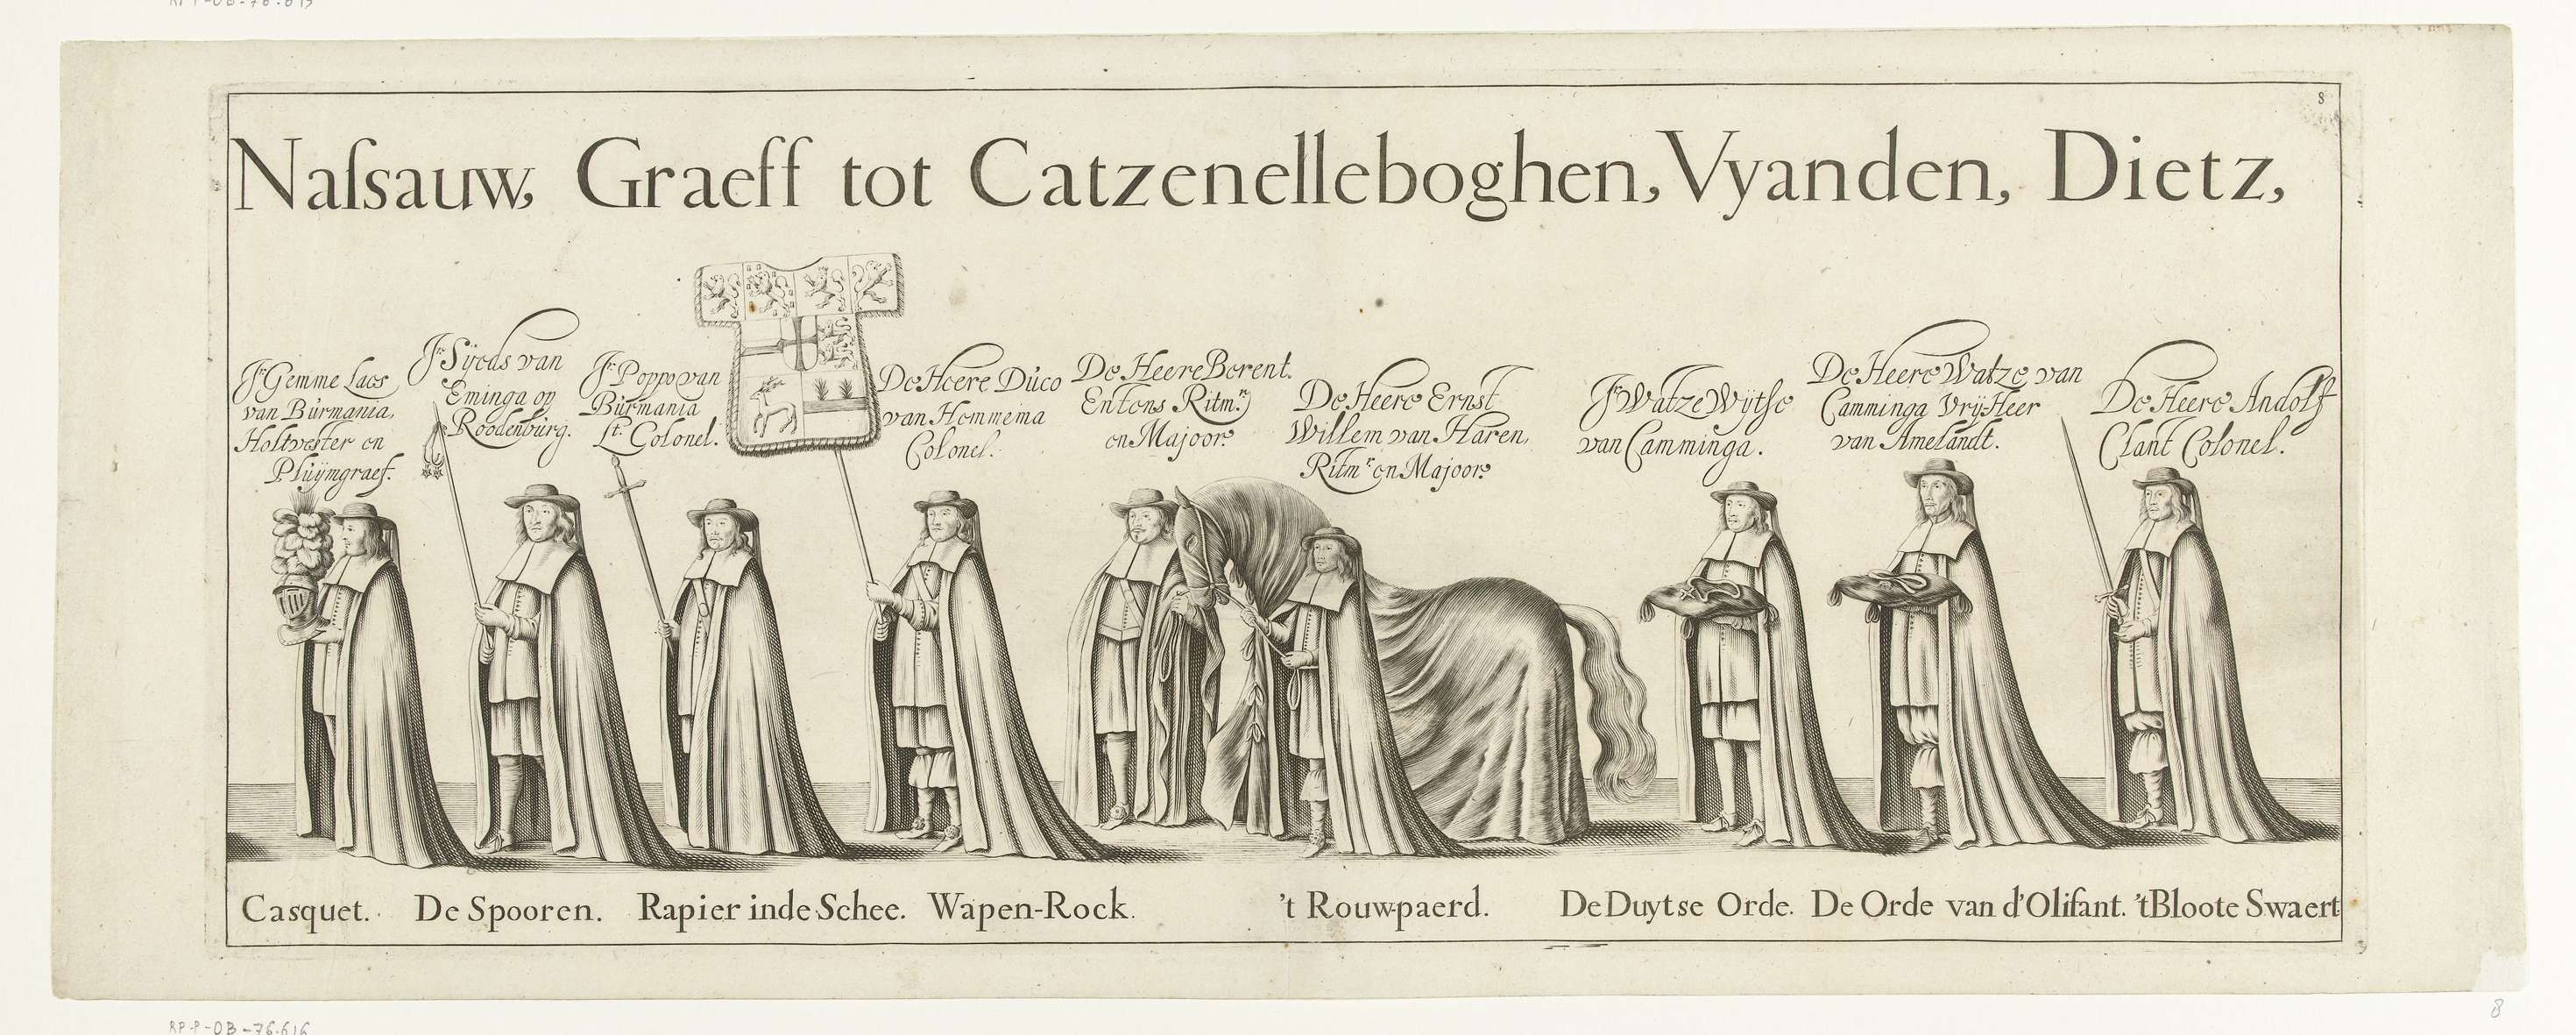 RP-P-OB-76.615
8
Naſsauw, Graeff tot Catzenelleboghen, Vyanden, Dietz,
Jr. Gemme Laes
van Bürmania,
Holtvester en
Plüÿmgraef.
Jr. Sÿcds van
Eminga op
Roodenbürg.
Jr. Poppo van
Bürmania
Lt. Colonel.
De Heere Düco
van Hemmema
Colonel.
De Heere Berent
Entens Ritmr.
en Majoor.
De Heere Ernst
Willem van Haren,
Ritmr en Majoor.
Jr Watze Wÿtse
van Camminga.
De Heere Watze van
Camminga Vrÿ-Heer
van Amelandt.
De Heere Andolf
Clant Colonel.
Casquet. De Spooren. Rapier inde Schee. Wapen-Rock. 't Rouwpaerd. De Duytse Orde. De Orde van d'Olifant. 't Bloote Swaert
RP-P-OB-76.616
8